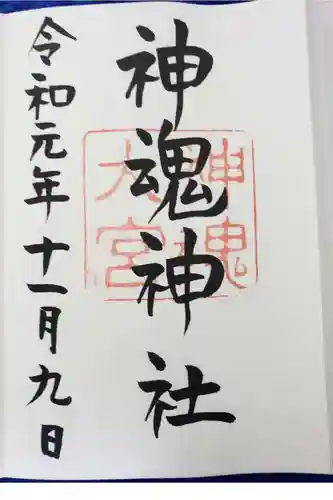 神魂神社
神魂
大宮
令和元年十一月九日